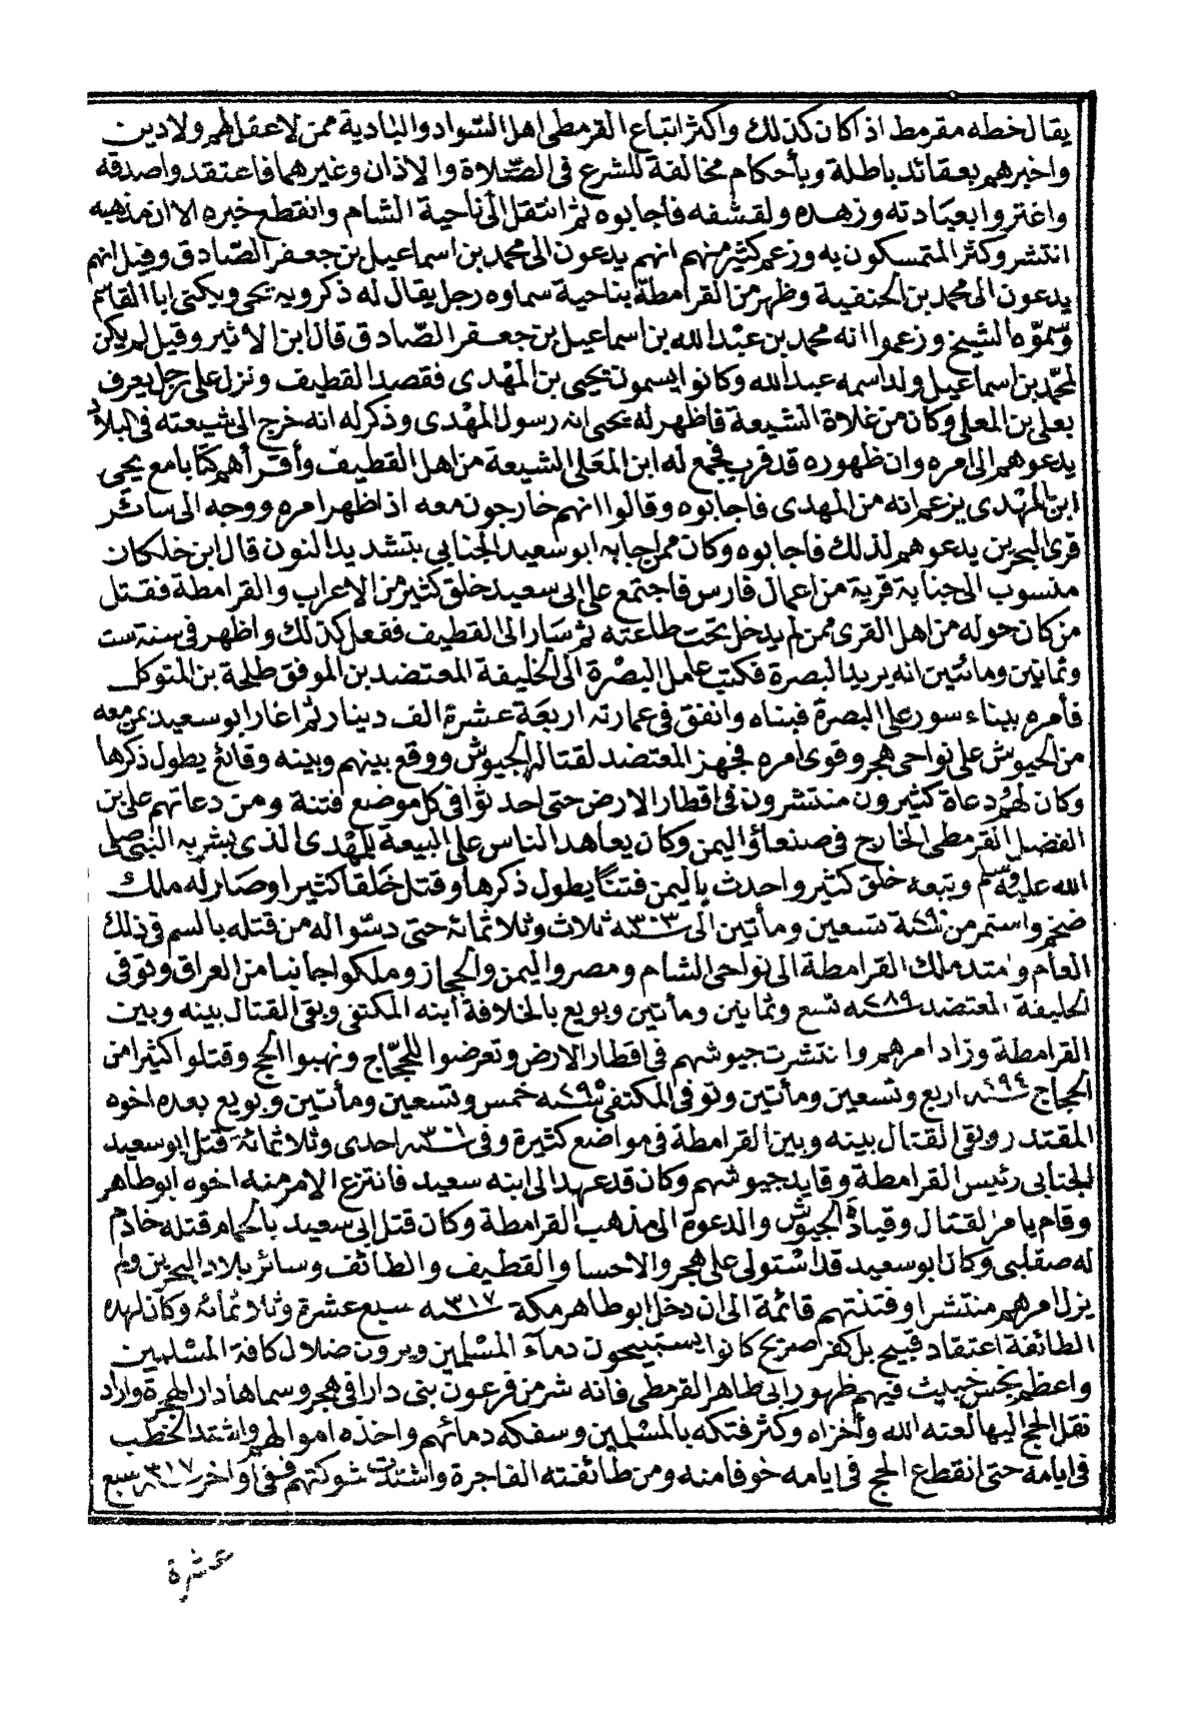 يقال خطه مقرمط اذا كان كذلك واكثر اتباع القرمطى اهل السواد والبادية ممن لا عقل لهم ولا دين
واخبرهم بعقائد باطلة وبأحكام مخالفة للشرع فى الصّلاة والاذان وغيرهما فاعتقد واصدقه
واغتروا بعبادته وزهده ولقشفه فأجابوه ثم انتقل الى ناحية الشام وانقطع خبره الا ان مذهبه
انتشر وكثر المتمسكون به وزعم كثير منهم انهم يدعون الى محمد بن اسماعيل بن جعفر الصّادق وقيل انهم
يدعون الى محمد بن الحنفية وظهر من القرامطة بناحية سماوه رجل يقال له ذكرويه يحيى ويكنى ابا القاسم
وسّموّه الشيخ وزعموا انه محمد بن عبْد الله بن اسماعيل بن جعفر الصّادق قال ابن الاثير وقيل لم يكن
لمحمّد بن اسماعيل ولد اسمه عبد الله وكانوا يسمون يحيى بن المهْدى فقصد القطيف ونزل على رجل يعرف
بعلى بن المعلى وكان من غلاة الشيعة فاظهر له يحيى انه رسول المهْدى وذكر له انه خرج الى شيعته فى البلاد
يدعوهم الى امره وان ظهوره قد قرب فجمع له ابن المعَلى الشيعة من اهل القطيف وأقرأهم كتابا مع يحيى
ابن المهْدى يزعم انه من المهدى فاجابوه وقالوا انهم خارجون معه اذ اظهر امره ووجه الى سائر
قرى البحرين يدعوهم لذلك فاجابوه وكان ممن اجابه ابو سعيد الجنابى بتشديد النون قال ابن خلكان
منسوب الى جنابة قرية من اعمال فارس فاجتمع على ابى سعيد خلق كثير من الاعراب والقرامطة فقتل
من كان حوله من اهل القرى ممن لم يدخل تحت طاعته ثم سار الى القطيف ففعل كذلك واظهر فى سنة ست
وثمانين ومائتين انه يريد البصرة فكتب عامل البصْرة الى الخليفة المعتضد بن الموفق طلحة بن المتوكل
فأمره ببناء سور على البصرة فبناه وانفق فى عمارته اربعة عشرة الف دينار ثم اغار ابو سعيد بمن معه
من الجيوش على نواحى هجر وقوى امره فجهز المعتضد لقتاله الجيوش ووقع بينهم وبينه وقائع يطول ذكرها
وكان لهم دعاة كثيرون منتشرون فى اقطار الارض حتى احدثوا فى كل موضع فتنة ومن دعاتهم على بن
الفضل القرمطى الخارج فى صنعاؤ اليمن وكان يعاهد الناس على البيعة للمهْدى الذى بشر به النبى صلى
الله عليه وسلم وتبعه خلق كثير واحدث باليمن فتنًا يطول ذكرها وقتل خَلقا كثيرا وصار له ملك
ضخم واستمر من ٢٩٠سنة تسعين ومأتين الى ٣٠٣سنه ثلاث وثلاثمائة حتى دسّوا له من قتله بالسم فى ذلك
العام وامتد ملك القرامطة الى نواحى الشام ومصر واليمن والحجاز وملكوا جانبا من العراق وتوفى
الخليفة المعتضد ٢٨٩سنه تسع وثمانين ومأتين وبويع بالخلافة ابنه المكتفى وبقى القتال بينه وبين
القرامطة وزاد امرهم وانتشرت جيوشهم فى اقطار الارض وتعرضوا للحجّاج ونهبوا الحج وقتلوا اكثيرا من
الحجاج ٢٩٤سنه اربع وتسعين ومأتين وتوفى المكتفى ٢٩٥سنه خمس وتسعين ومأتين وبويع بعده اخوه
المقتدر وبقى القتال بينه وبين القرامطة فى مواضع كثيرة وفى ٣٠١سنه احدى وثلاثمائة قتل ابو سعيد
الجنابى رئيس القرامطة وقايد جيوشهم وكان قد عهد الى ابنه سعيد فانتزع الامر منه اخوه ابو طاهر
وقام بامر القتال وقيادة الجيوش والدعوة الى مذهب القرامطة وكان قتل ابى سعيد بالحمام قتله خادم
له صقلبى وكان ابو سعيد قد استولى على هجر والاحسا والقطيف والطائف وسائر بلاد البحرين ولم
يزل امرهم منتشرا وفتنتهم قائمة الى ان دخل ابو طاهر مكة ٣١٧سنه سبع عشرة وثلاثمائة وكان لهذه
الطائفة اعتقاد قبيح بل كفر صريح كانوا يستبيحون دماءَ المسْلمين ويرون ضلال كافة المسْلمين
واعظم نجس خبيث فيهم ظهور ابى طاهر القرمطى فانه شر من فرعون بنى دارا فى هجر وسماها دار الهجرة واراد
نقل الحج اليها لعنه الله وأخزاه وكثر فتكه بالمسْلمين وسفكه دمائهم واخذه اموالهم واشتد الخطب
فى ايامه حتى انقطع الحج فى ايامه خوفا منه ومن طائفته الفاجرة واشتدت شوكتهم ففى اواخر ٣١٧سنه سبع
عشرة